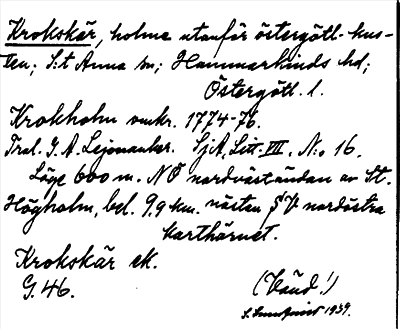 Krokskär, holme utanför östergötl.-kus-
ten; S:t Anna sn; Hammarkinds hd;
Östergötl. l.
Krokholm omkr. 1774-76.
Trol. G. A. Lejonanker. SjA, Litt. VII. N:o 16.
Läge 600 m. NO nordväständan av St.
Högholm, bel. 9,9 km. nästan rV nordöstra
karthörnet.
Krokskär ek.
G. 46.
(Vänd!)
S. 1939.